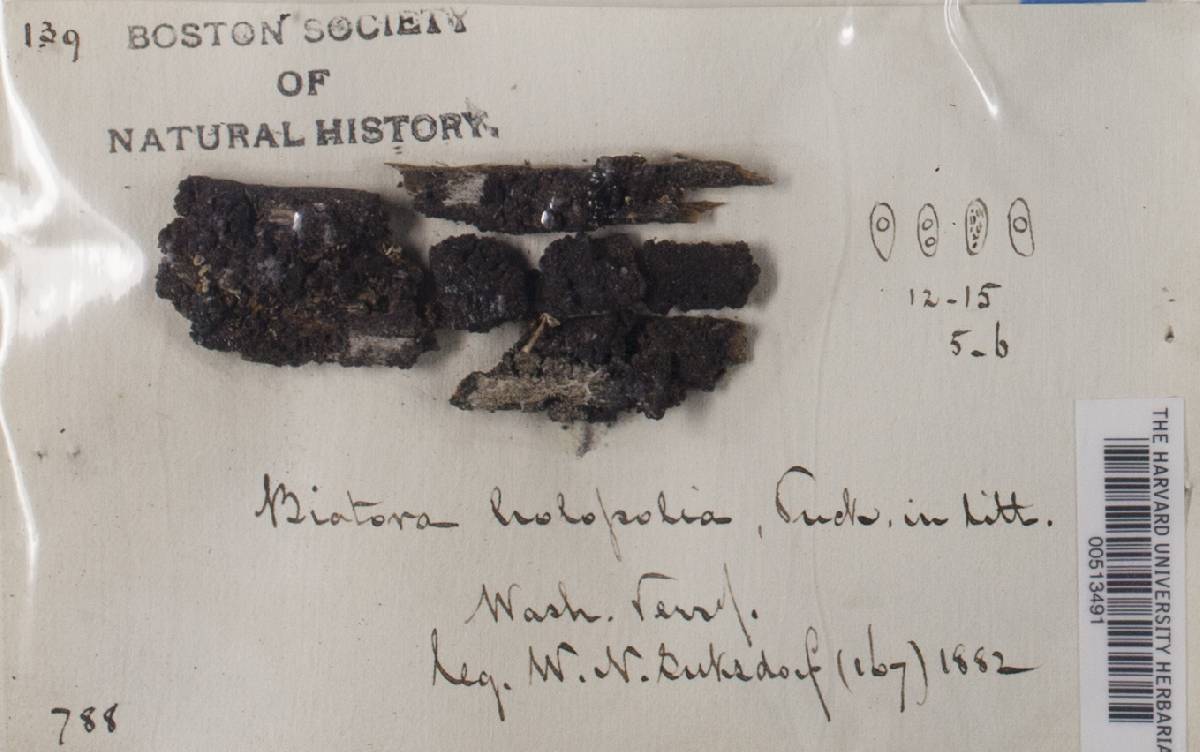 139
BOSTON SOCIETY
OF
NATURAL HISTORY.
12-15
5-6
Biatora holopolia, Tuck. in litt.
Wash. Terr'y.
leg. W. N. Suksdorf (167) 1882
788
THE HARVARD UNIVERSITY HERBARIA
00513491